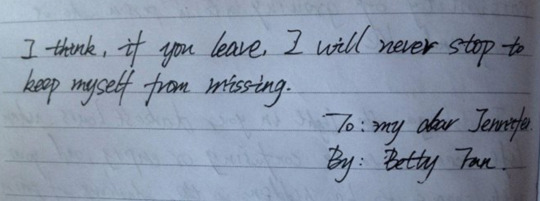 I think, if you leave, I will never stop to
keep myself from missing.
To: my dear Jennifer.
By: Betty Fan.